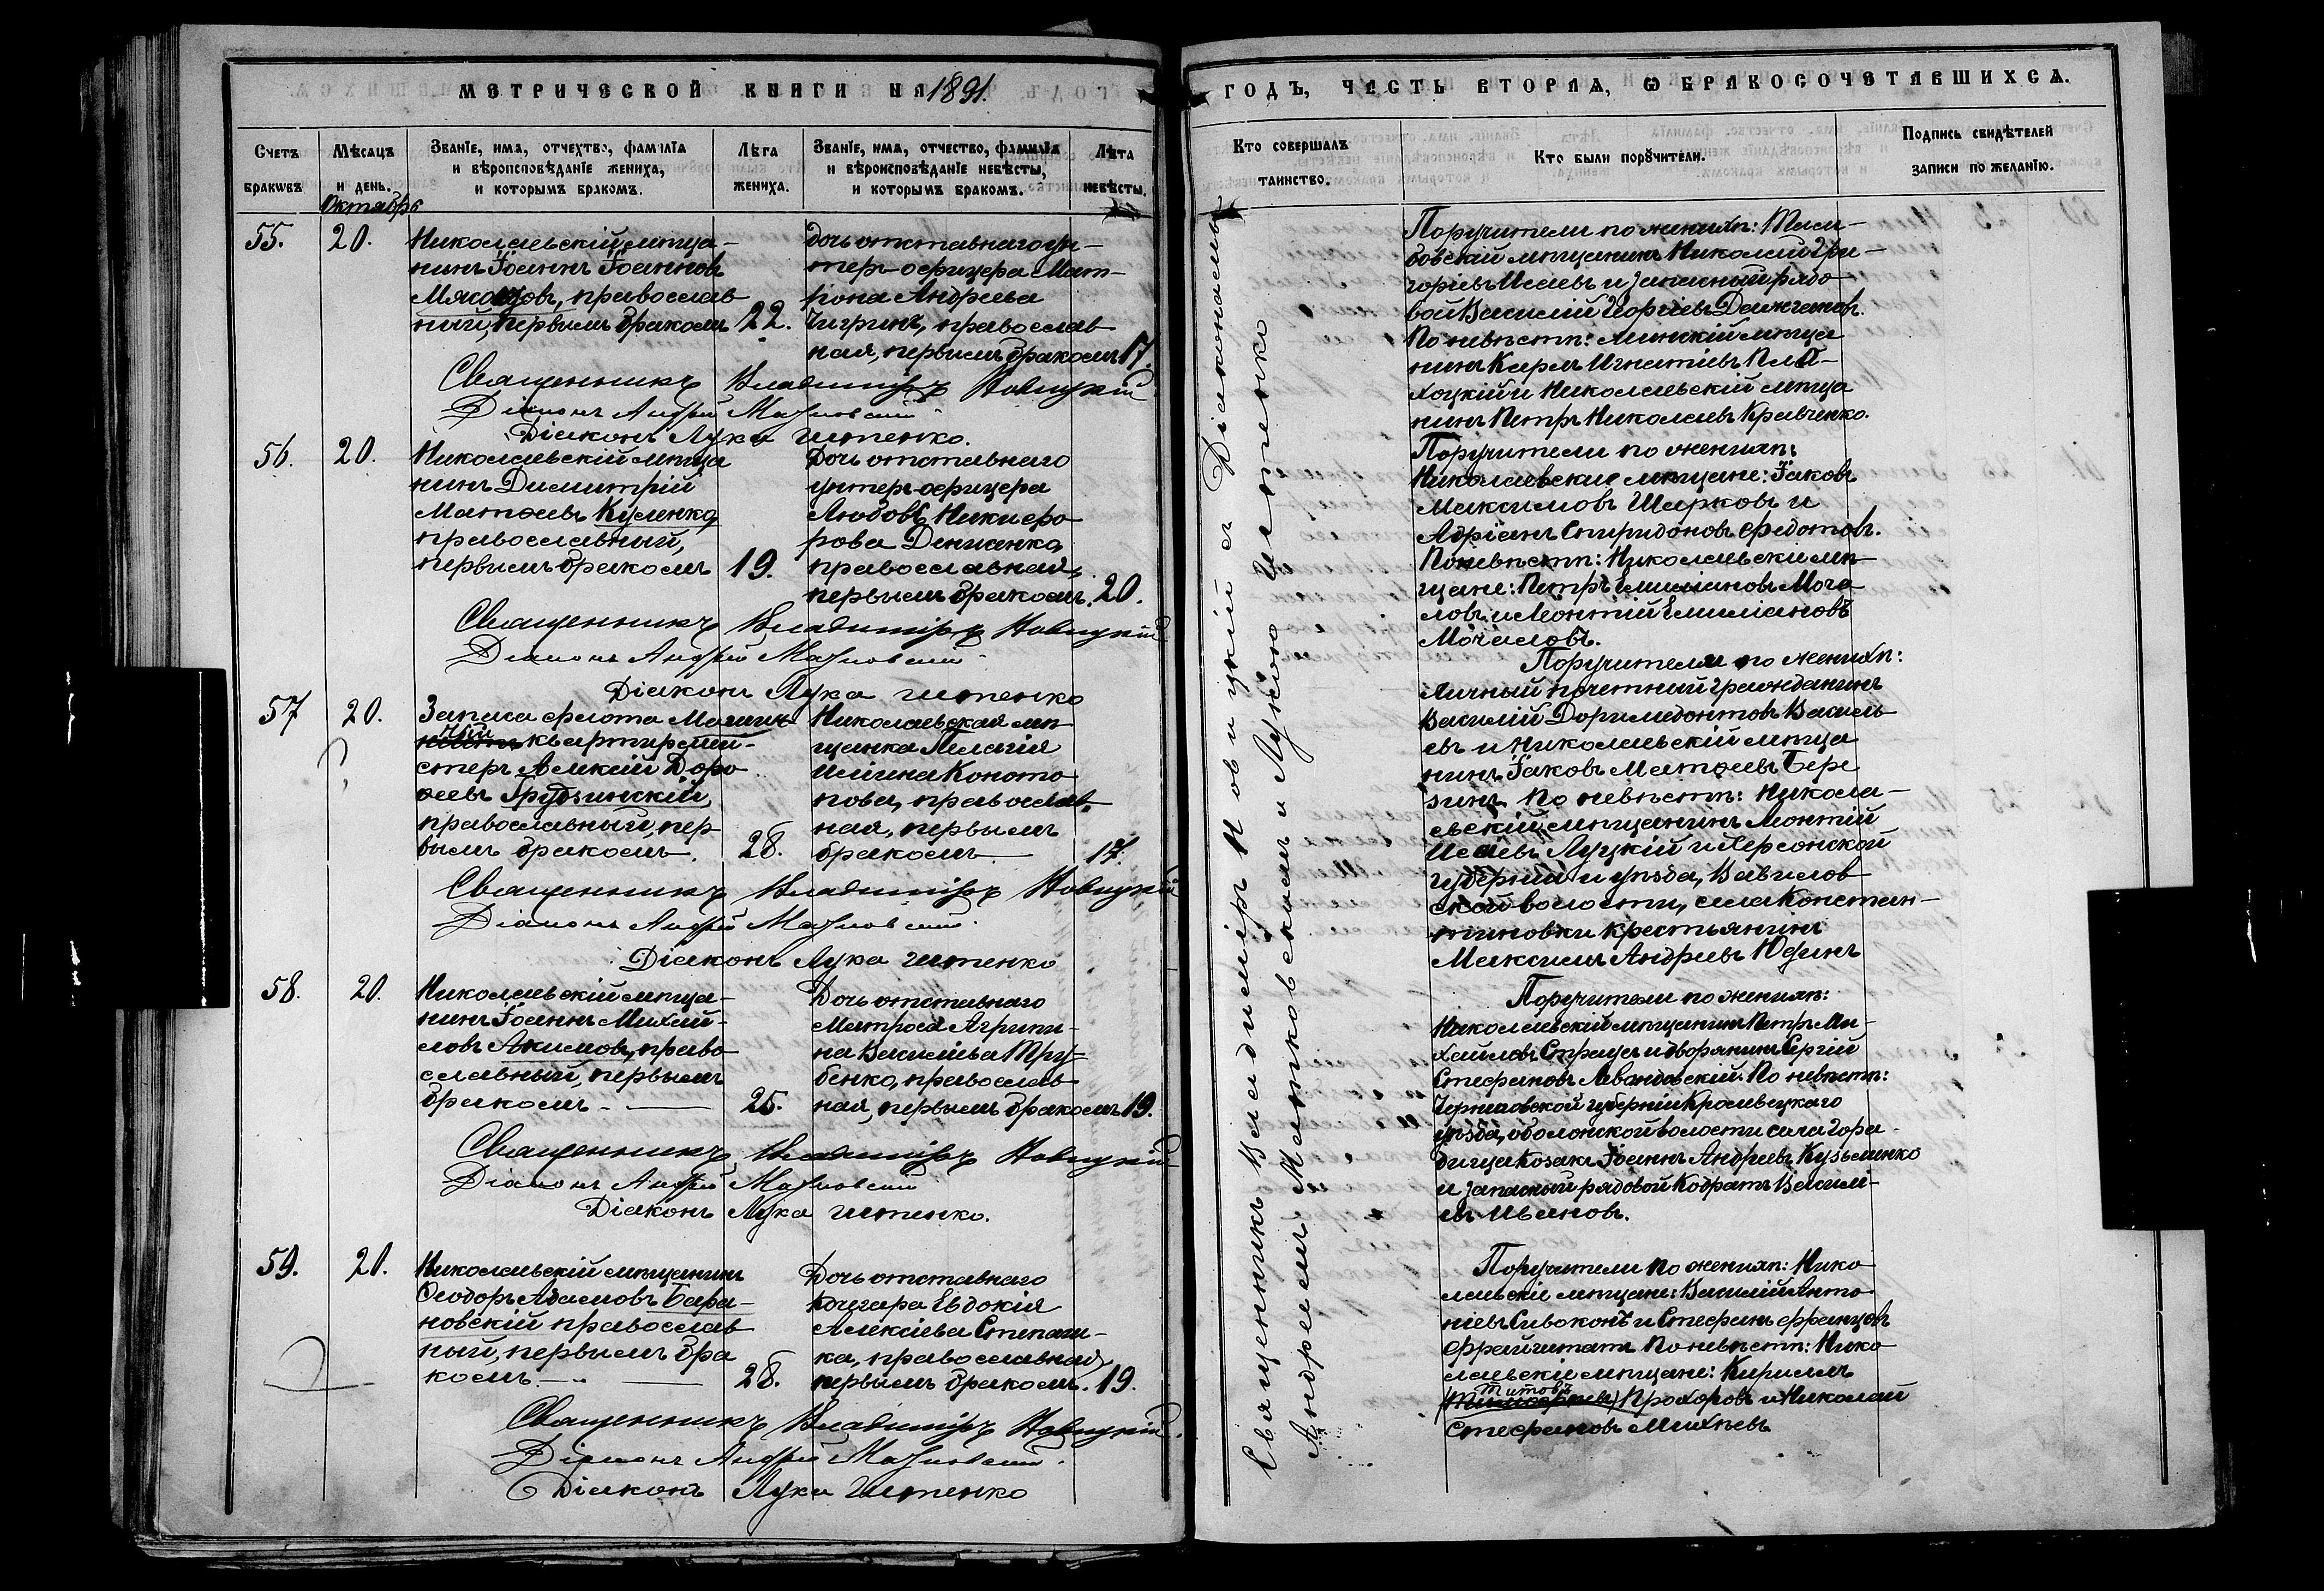 МЕТРИЧЕСКОЙ КНИГИ НА 1891.
Счетъ браковъ
Мѣсяцъ и день.
Званіе, имя, отчество, фамилія и вѣроисповѣданіе жениха, и которымъ бракомъ.
Лѣта жениха.
Званіе, имя, отчество, фамилія и вѣроисповѣданіе невѣсты, и которымъ бракомъ.
Лѣта невѣсты.
Октябрь
55.
20.
Николаевскій мѣща-
нинъ Іоаннъ Іоанновъ
православ
ный, первымъ бракомъ
22.
Дочь отставнаго ун-
теръ-офицера Мат-
рона Андреева
Чигринъ, православ
ная, первымъ бракомъ
17.
Священникъ Владиміръ Новицкій
Діаконъ Андрей
Діаконъ Лука Иетенко.
56.
20.
Николаевскій мѣща
нинъ Димитрій
Матѳеевъ Куленко
православный,
первымъ бракомъ
19.
Дочь отставнаго
унтеръ-офицера
Любовь Никифо
рова
православная,
первымъ бракомъ.
20.
Священникъ Владиміръ Новицкій
Діаконъ Андрей
Діаконъ Лука Иетенко
57
20.
Запаса флота
квартирмей-
стеръ Алексій Доро
ѳеевъ Грудзинскій,
православный, пер
вымъ бракомъ.
28.
Николаевская мѣ
щанка Пелагія
Ильина Коното
пова, православ
ная, первымъ
бракомъ
17.
Священникъ Владиміръ Новицкій
Діаконъ Андрей
Діаконъ Лука Иетенко
58.
20.
Николаевскій мѣща-
нинъ Іоаннъ Михай-
ловъ Акимовъ, право
славный, первымъ
бракомъ.
25.
Дочь отставнаго
матроса Агрипи-
на Василіева Тру-
бенко, православ
ная, первымъ бракомъ
19.
Священникъ Владиміръ Новицкій
Діаконъ Андрей
Діаконъ Лука Иетенко.
59.
20.
Николаевскій мѣщанинъ
Ѳеодоръ Адамовъ Бара-
новскій православ
ный, первымъ бра
комъ.
28.
Дочь отставнаго
кочегара Евдокія
Алексіева Степани-
ка, православная,
первымъ бракомъ.
19.
Священникъ Владиміръ Новицкій.
Діаконъ Андрей
Діаконъ Лука Иетенко
ГОДЪ, ЧАСТЬ ВТОРАЯ, Ѡ БРАКОСОЧЕТАВШИХСЯ.
Кто совершалъ таинство.
Кто были порꙋчители.
Подпись свидѣтелей записи по желанію.
Священникъ Владиміръ Новицкій съ Діаконами
Андреемъ и Лукою Иетенко
Поручители по женихѣ:
мѣщанинъ Николай Гри-
горіевъ Исаевъ и запасный рядо
вой Василій Георгіевъ
По невѣстѣ: Минскій мѣща
нинъ Карлъ Игнатіевъ
и Николаевскій мѣща
нинъ Петръ Николаевъ Кравченко.
Поручители по женихѣ:
Николаевские мѣщане: Іаковъ
Максимовъ Шарковъ и
Адріанъ Спиридоновъ Федотовъ.
По невѣстѣ: Николаевскіе мѣ
щане: Петръ Емиліановъ Моча
ловъ и Леонтій Емиліановъ
Мочаловъ.
Поручители по женихѣ:
Личный почетный гражданинъ
Василій Доримедонтовъ Василь
евъ и Николаевскій мѣща
нинъ Іаковъ Матѳеевъ Бере
зинъ. По невѣстѣ: Никола-
евскій мѣщанинъ Леонтій
Исаевъ Луцкій и Херсонской
губерніи и уѣзда, Вавилов
ской волости, села Констан-
тиновки крестьянинъ
Максимъ Андреевъ Юдинъ
Поручители по женихѣ:
Николаевскій мѣщанинъ Петръ Ми-
хайловъ и дворянинъ Сергій
Стефановъ Левандовскій. По невѣстѣ:
Черниговской губерніи Кролевецкаго
уѣзда, оболонской волости села Горо-
дища козакъ Іоаннъ Андреевъ Кузьменко
и запасный рядовой Кодратъ Василі-
евъ Ивановъ.
Поручители по женихѣ: Нико
лаевскіе мѣщане: Василій Анто
ніевъ Сивоконь и Стефанъ Францовъ
По невѣстѣ: Нико
лаевскіе мѣщане: Кириллъ
Титовъ
Прохоровъ и Николай
Стефановъ Михѣевъ